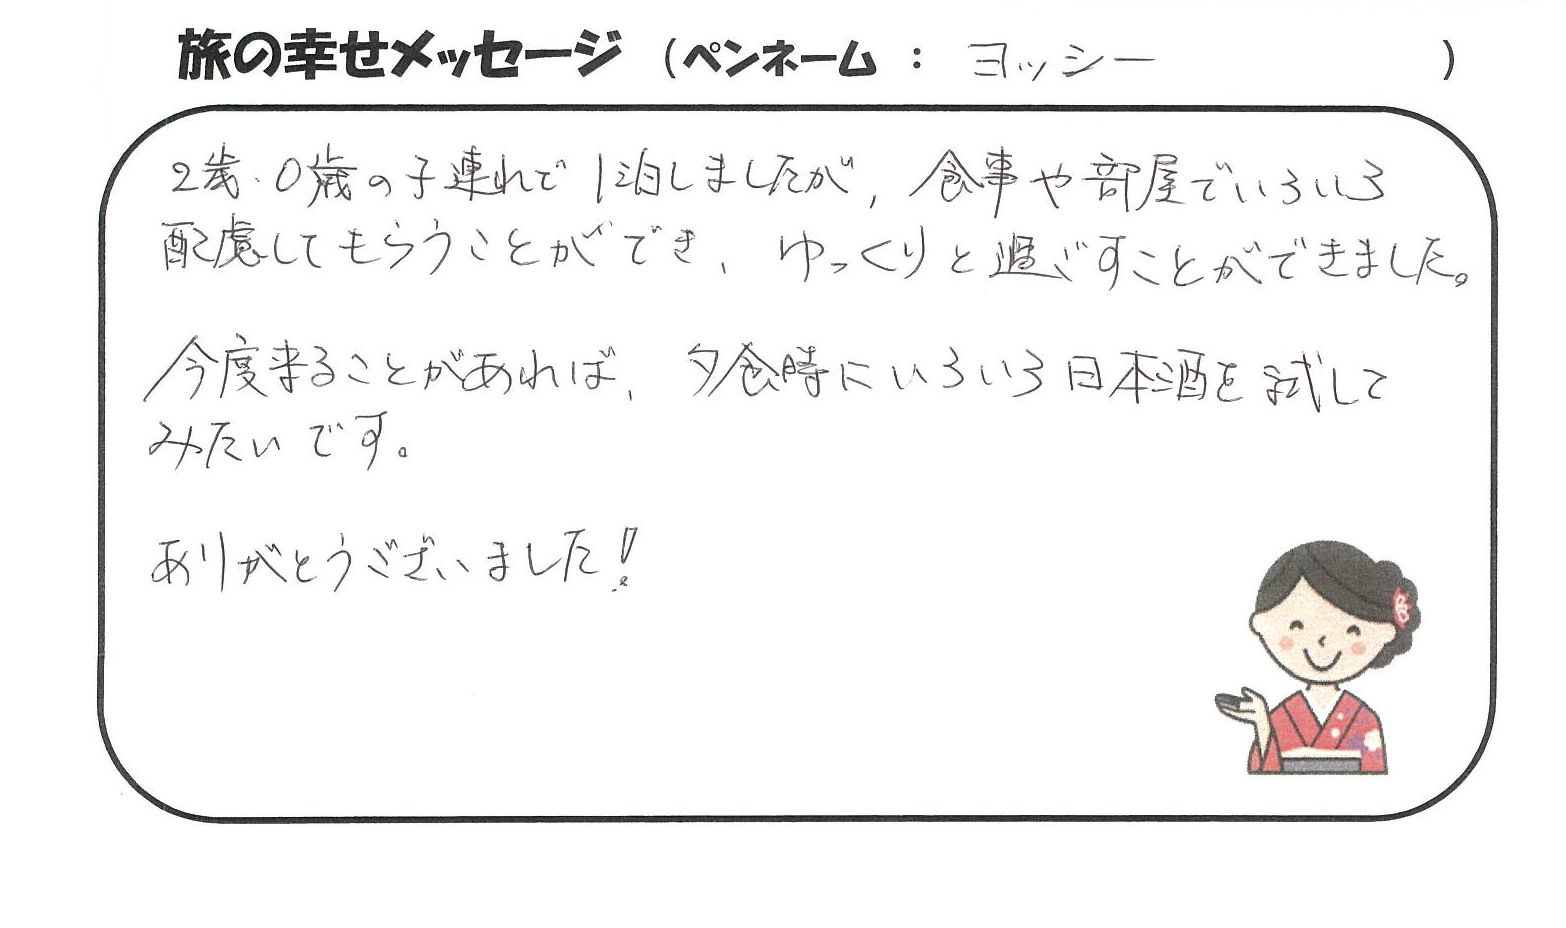 旅の幸せメッセージ (ペンネーム : ヨッシー )
2歳・0歳の子連れで1泊しましたが、食事や部屋でいろいろ
配慮してもらうことができ、ゆっくりと過ごすことができました。
今度来ることがあれば、夕食時にいろいろ日本酒を試して
みたいです。
ありがとうございました!